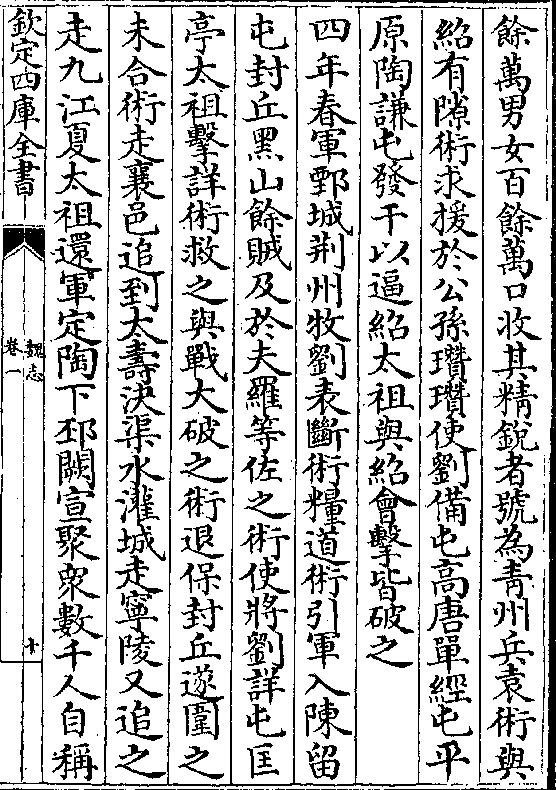 餘萬男女百餘萬口收其精銳者號為青州兵袁術與
紹有隙術求援於公孫瓚瓚使劉備屯高唐單經屯平
原陶謙屯發干以逼紹太祖與紹會擊皆破之
四年春軍鄄城荆州牧劉表斷術糧道術引軍入陳留
屯封丘黑山餘賊及於夫羅等佐之術使將劉詳屯匡
亭太祖擊詳術救之與戰大破之術退保封丘遂圍之
未合術走襄邑追到太壽決渠水灌城走寧陵又追之
走九江夏太祖還軍定陶下邳闕宣聚衆數千人自稱
欽定四庫全書
魏志
卷一
十